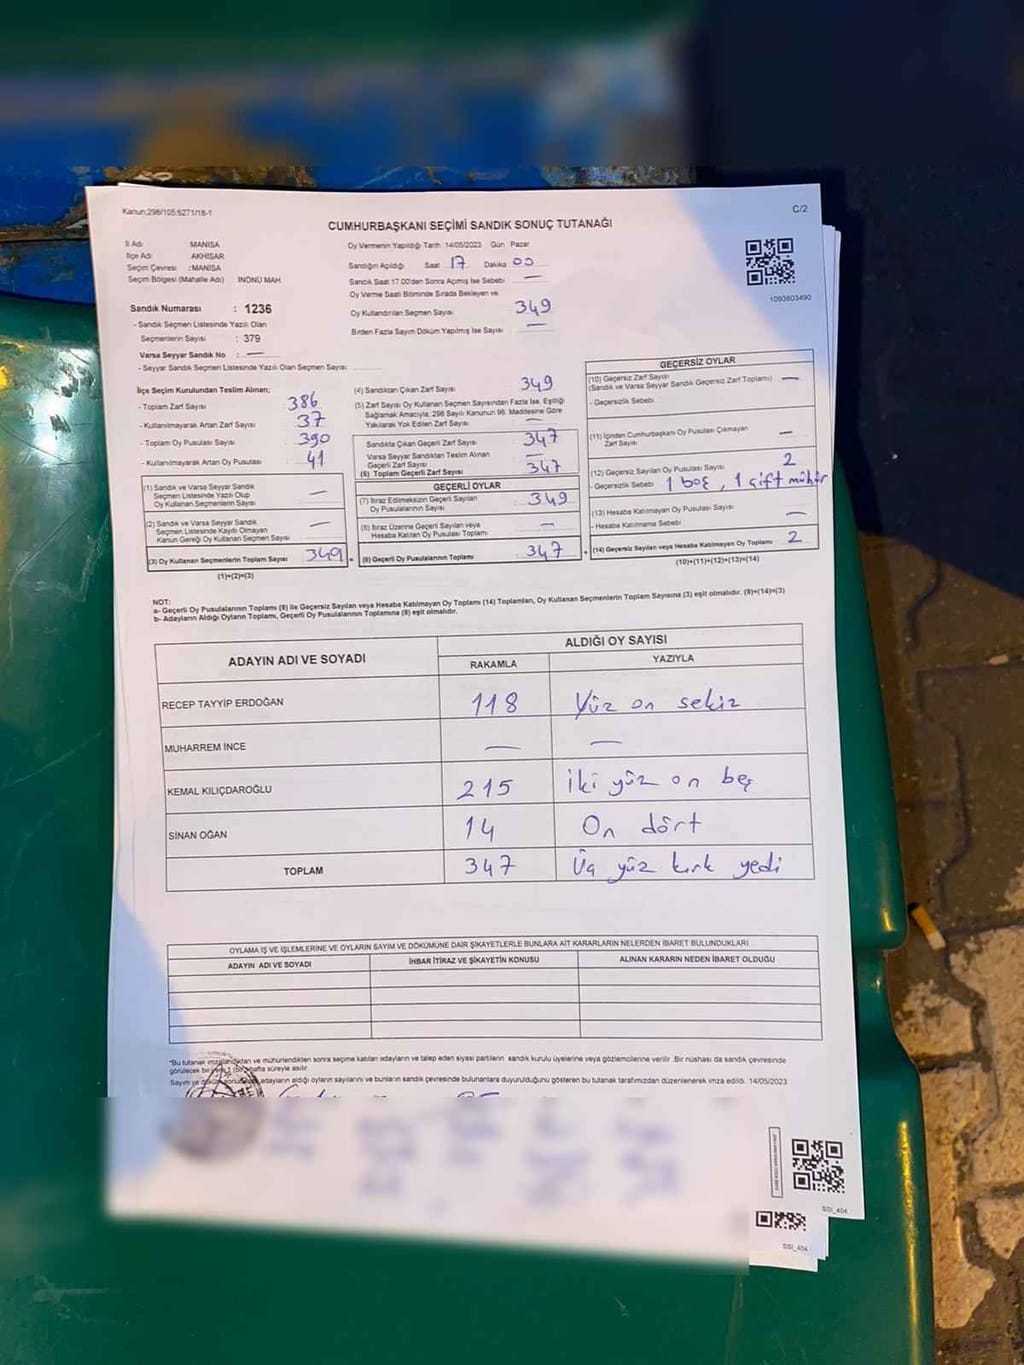 Kanun:298/105;6271/18-1
C/2
CUMHURBAŞKANI SEÇİMİ SANDIK SONUÇ TUTANAĞI
İl Adı : MANİSA
İlçe Adı : AKHİSAR
Seçim Çevresi : MANİSA
Seçim Bölgesi (Mahalle Adı) İNÖNÜ MAH
Oy Vermenin Yapıldığı Tarih :14/05/2023 Gün Pazar
Sandığın Açıldığı Saat 17 Dakika 00
Sandık Saat 17.00'den Sonra Açılmış İse Sebebi —
Oy Verme Saati Bitiminde Sırada Bekleyen ve
Oy Kullandırılan Seçmen Sayısı 349
Birden Fazla Sayım Döküm Yapılmış İse Sayısı —
1093803490
Sandık Numarası : 1236
- Sandık Seçmen Listesinde Yazılı Olan
Seçmenlerin Sayısı : 379
Varsa Seyyar Sandık No : —
- Seyyar Sandık Seçmen Listesinde Yazılı Olan Seçmen Sayısı
İlçe Seçim Kurulundan Teslim Alınan;
- Toplam Zarf Sayısı 386
- Kullanılmayarak Artan Zarf Sayısı 37
- Toplam Oy Pusulası Sayısı 390
- Kullanılmayarak Artan Oy Pusulası 41
(1) Sandık ve Varsa Seyyar Sandık
Seçmen Listesinde Yazılı Olup
Oy Kullanan Seçmenlerin Sayısı —
(2) Sandık ve Varsa Seyyar Sandık
Seçmen Listesinde Kaydı Olmayan
Kanun Gereği Oy Kullanan Seçmen Sayısı —
(3) Oy Kullanan Seçmenlerin Toplam Sayısı 349
(1)+(2)=(3)
(4) Sandıktan Çıkan Zarf Sayısı 349
(5) Zarf Sayısı Oy Kullanan Seçmen Sayısından Fazla İse, Eşitliği
Sağlamak Amacıyla; 298 Sayılı Kanunun 98. Maddesine Göre
Yakılarak Yok Edilen Zarf Sayısı —
Sandıkta Çıkan Geçerli Zarf Sayısı 347
Varsa Seyyar Sandıktan Teslim Alınan
Geçerli Zarf Sayısı —
(6) Toplam Geçerli Zarf Sayısı 347
GEÇERLİ OYLAR
(7) İtiraz Edilmeksizin Geçerli Sayılan
Oy Pusulalarının Sayısı 349
(8) İtiraz Üzerine Geçerli Sayılan veya
Hesaba Katılan Oy Pusulaları Toplamı —
(9) Geçerli Oy Pusulalarının Toplamı : 347
GEÇERSİZ OYLAR
(10) Geçersiz Zarf Sayısı
(Sandık ve Varsa Seyyar Sandık Geçersiz Zarf Toplamı) —
- Geçersizlik Sebebi
(11) İçinden Cumhurbaşkanı Oy Pusulası Çıkmayan
Zarf Sayısı —
(12) Geçersiz Sayılan Oy Pusulası Sayısı 2
- Geçersizlik Sebebi 1 boş, 1 çift mühür
(13) Hesaba Katılmayan Oy Pusulası Sayısı —
- Hesaba Katılmama Sebebi
(14) Geçersiz Sayılan veya Hesaba Katılmayan Oy Toplamı 2
(10)+(11)+(12)+(13)=(14)
NOT:
a- Geçerli Oy Pusulalarının Toplamı (9) ile Geçersiz Sayılan veya Hesaba Katılmayan Oy Toplamı (14) Toplamları, Oy Kullanan Seçmenlerin Toplam Sayısına (3) eşit olmalıdır. (9)+(14)=(3)
b- Adayların Aldığı Oyların Toplamı, Geçerli Oy Pusulalarının Toplamına (9) eşit olmalıdır.
ADAYIN ADI VE SOYADI
ALDIĞI OY SAYISI
RAKAMLA YAZIYLA
RECEP TAYYİP ERDOĞAN 118 Yüz on sekiz
MUHARREM İNCE — —
KEMAL KILIÇDAROĞLU 215 İki yüz on beş
SİNAN OĞAN 14 On dört
TOPLAM 347 Üç yüz kırk yedi
OYLAMA İŞ VE İŞLEMLERİNE VE OYLARIN SAYIM VE DÖKÜMÜNE DAİR ŞİKAYETLERLE BUNLARA AİT KARARLARIN NELERDEN İBARET BULUNDUKLARI
ADAYIN ADI VE SOYADI İHBAR İTİRAZ VE ŞİKAYETİN KONUSU ALINAN KARARIN NEDEN İBARET OLDUĞU
*Bu tutanak imzalandıktan ve mühürlendikten sonra seçime katılan adayların ve talep eden siyasi partilerin sandık kurulu üyelerine veya gözlemcilerine verilir .Bir nüshası da sandık çevresinde
görülecek bir yere 1 (bir) hafta süreyle asılır.
Sayım ve döküm sonucunda adayların aldığı oyların sayılarını ve bunların sandık çevresinde bulunanlara duyurulduğunu gösteren bu tutanak tarafımızdan düzenlenerek imza edildi. 14/05/2023
SSI_404
SSI_404